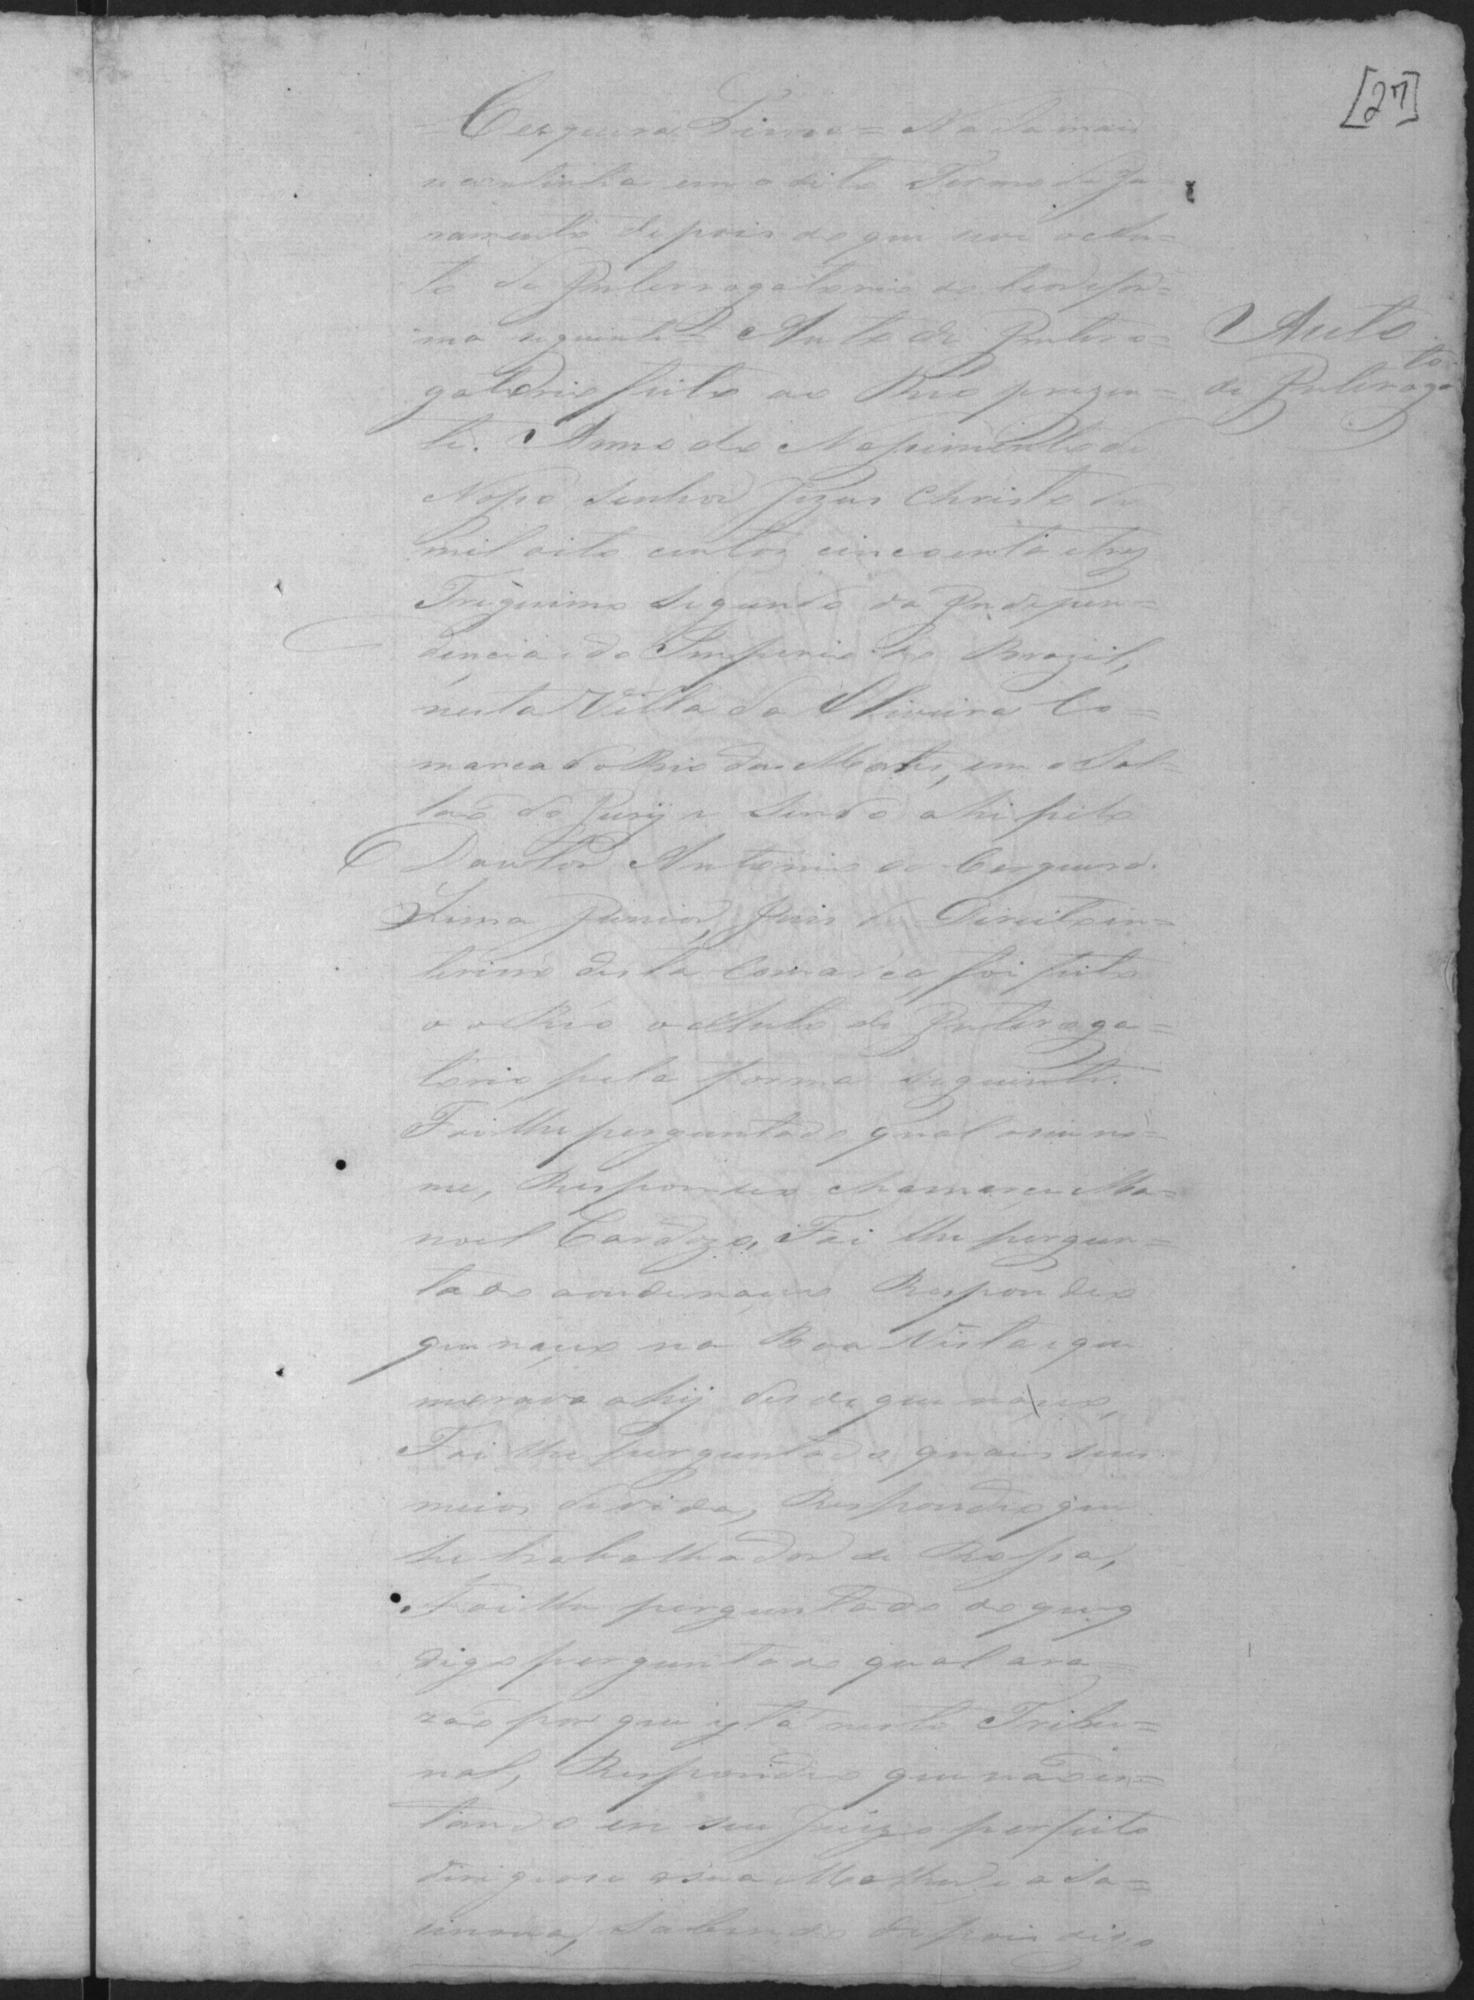 [27]
Cerqueira Lima = Nada mais
se continha em o dito Termo de Ju
ramento depois do que se ve o Au=
to de Interrogatorio do theor e for=
ma seguinte = Auto de Interro=
gatorio feito ao Reo prezen=
te. Anno do Nascimento de
Nosso Senhor Jezus Christo de
mil oito centos cincoenta e tres
Trigesimo Segundo da Indepen=
dencia e do Imperio do Brazil,
nesta Villa da Oliveira Co=
marca do Rio das Mortes, em o Sal=
laõ do Jury e Sendo ahi pelo
Doutor Antonio de Cerqueira
Lima Junior, Juis de Direito in=
terino desta Comarca, foi feito
ao Réo o Auto de Interroga=
torio pela forma seguinte.
Foi lhe perguntado qual o seu no=
me, Respondeo chamarse Ma=
noel Cardozo, Foi lhe pergun=
tado aonde nasceo Respondeo
que nasceo na Boa Vista e que
morava ahij desde que nasceo,
Foi lhe perguntado quais seus
meios de vida, Respondeo que
he trabalhador de Rossa,
Foi lhe perguntado do que
digo perguntado qual a ra=
zaõ por que está neste Tribu=
nal, Respondeo que naõ es=
tando em seu Juizo perfeito
dirigiose a sua Mulher e a as=
sinou, Sabendo depois disso
Auto
de Interroga
to.